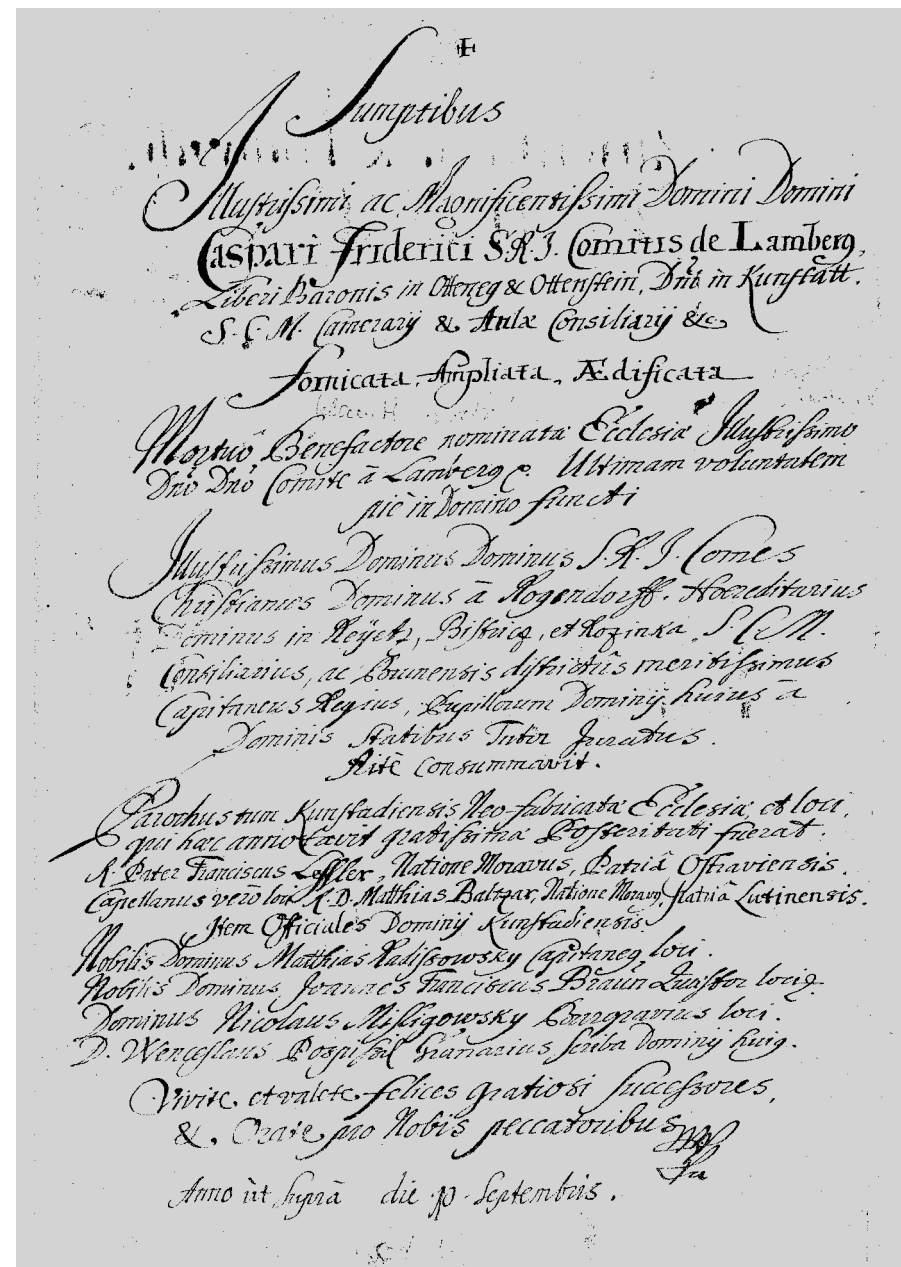 Sumptibus
Illustrissimi ac Magnificentissimi Domini Domini
Caspari Friderici S.R.I. Comitis de Lamberg,
Liberi Baronis in Otteneg & Ottenstein, Dni in Kunstatt.
S.C.M. Camerarij & Aulæ Consiliarij &c
Fornicata, Ampliata, Ædificata
Mortuô Benefactore nominatæ Ecclesiæ Illustrissimo
Dnô Dnô Comite â Lamberg Ultimam voluntatem
piè in Domino functi
Illustrissimus Dominus Dominus S.R.I. Comes
Christianus Dominus â Rogendorff. Hoereditarius
Dominus in Bistricz, et Rozinka S.C.M.
Consiliarius, ac Brunensis districtûs meritissimus
Capitaneus Regius, Pupillorum Dominij huius â
Dominis Statibus Tutor Juratus.
Ritè Consummavit.
Parochus tum Kunstadiensis Neo-fabricatæ Ecclesiæ, et loci,
qui hæc annotavit gratissimæ Posteritati fuerat.
R. Pater Franciscus Leffler, Natione Moravus, Patriâ Ostraviensis.
Capellanus verò loci R.D. Matthias Baltzar, Natione Moravus, Patriâ Lutinensis.
Item Officiales Dominij Kunstadiensis
Nobilis Dominus Matthias Radissowsky Capitaneus loci.
Nobilis Dominus Joannes Franciscus Braun Quæstor loci
Dominus Nicolaus Misligowsky Burgravius loci.
D. Wenceslaus Pospissil Granarius scriba Dominij huius.
Vivite, et valete felices gratiosi successores,
&, Orate pro Nobis peccatoribus
Anno ùt suprà die Septembris.